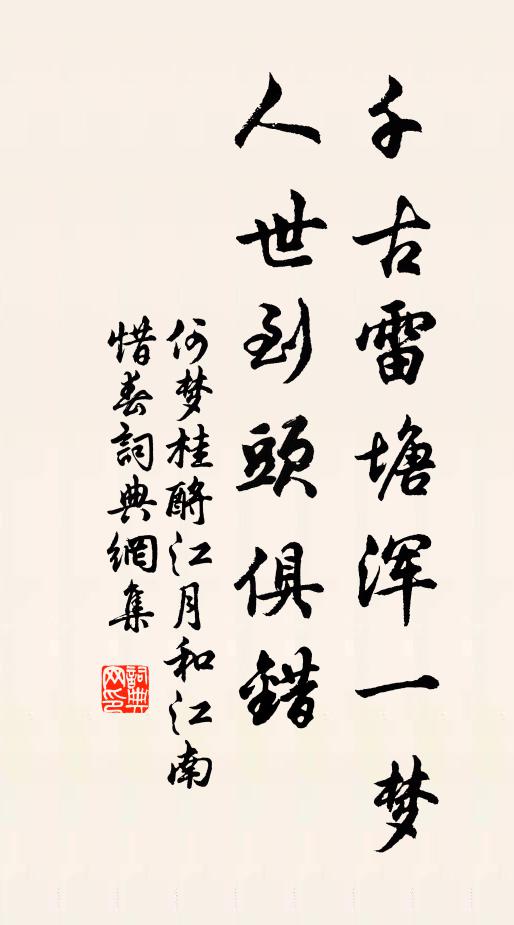 千古雷塘浑一梦
人世到頭俱錯
何梦桂酹江月和江南
惜春詞典網集
詞典
网印